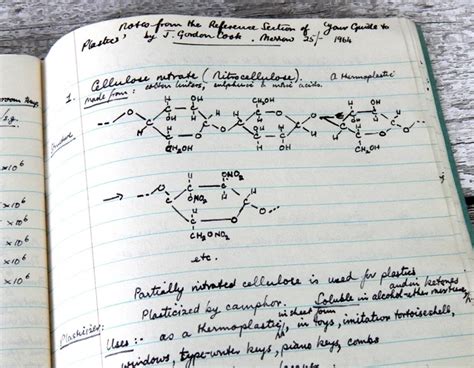 Notes from the Reference Section of "Your Guide to
Plastics" by J. Gordon Cook. Merrow 25/- 1964
1. Cellulose nitrate (Nitrocellulose). A thermoplastic
made from: cotton linters, sulphuric & nitric acids.
Structure
OH
H
CH₂OH
ONO₂
CH₂ONO₂
etc.
Partially nitrated cellulose is used for plastics
Plasticized by camphor. Soluble in alcohol-ether mixtures
and in ketones
Plasticizer:
in sheet form
Uses: as a thermoplastic, in toys, imitation tortoiseshell,
windows, type-writer keys, piano keys, combs
room temp
S.g.
×10⁶
×10⁶
×10⁶
×10⁶
×10⁶